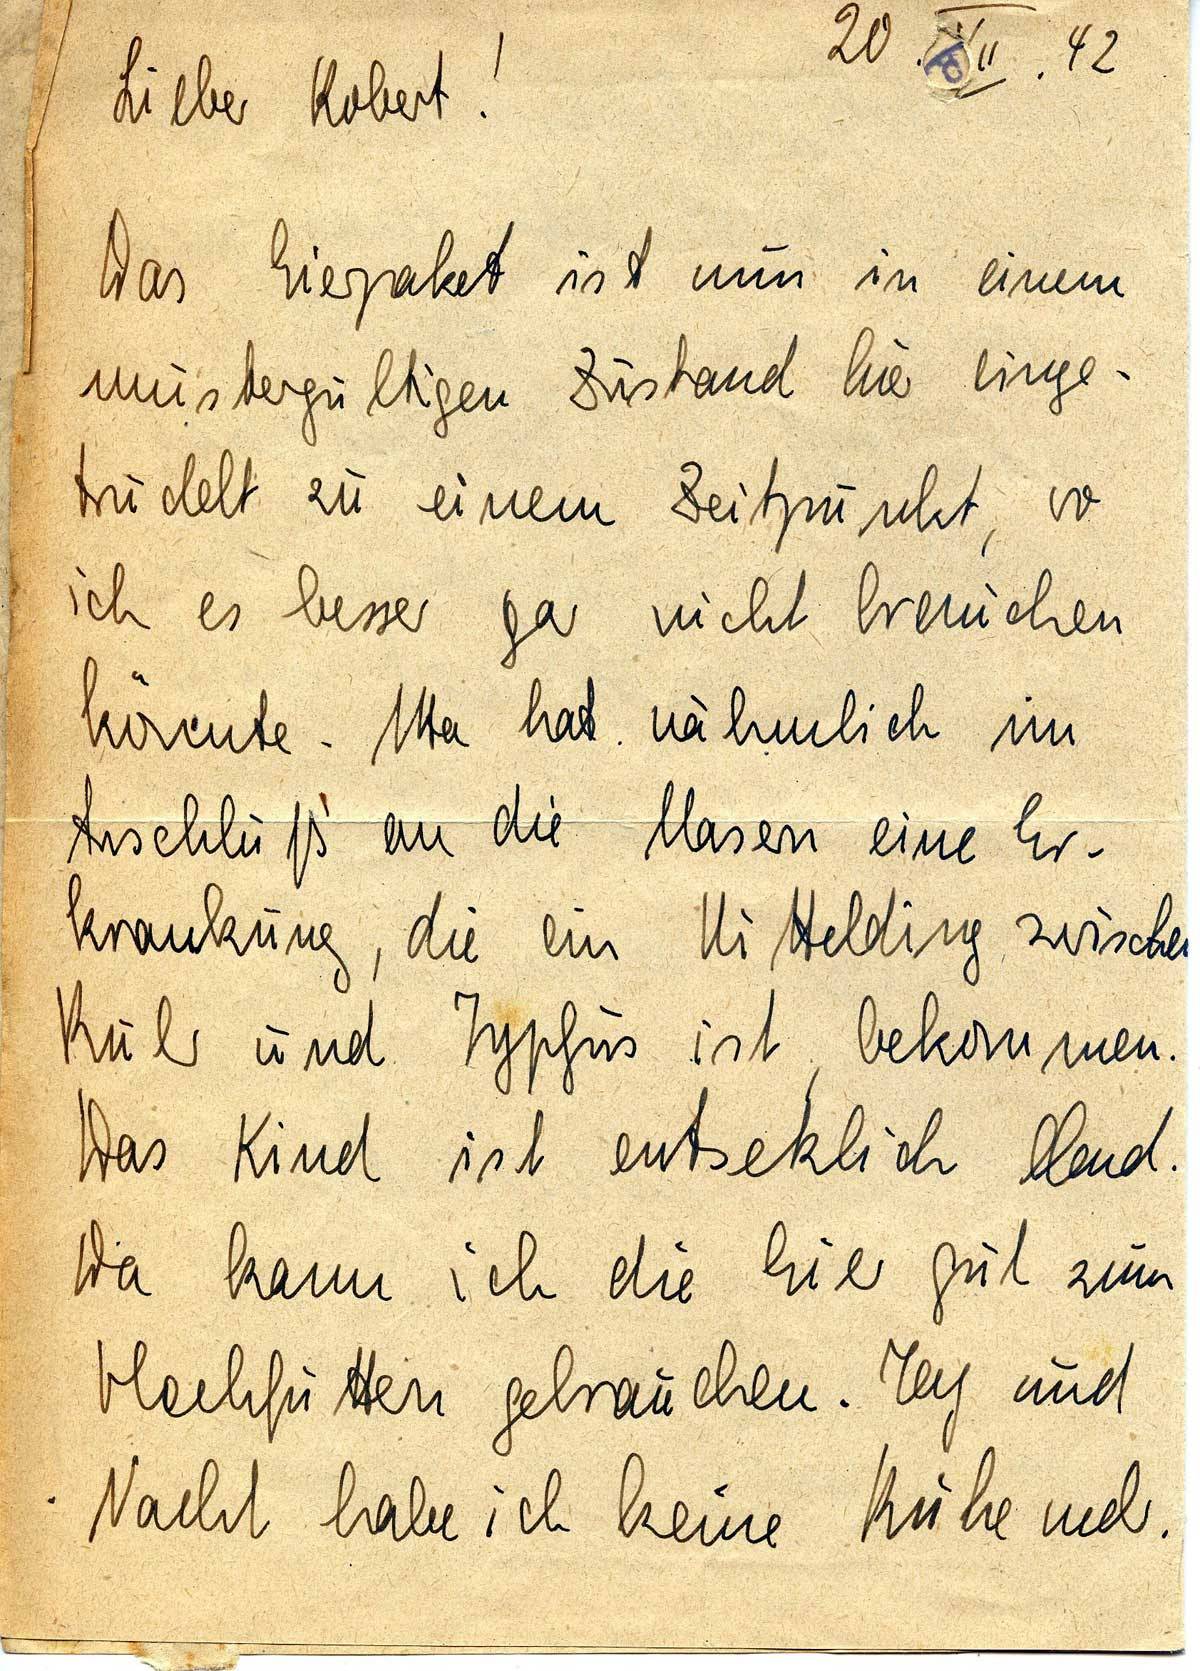 20. VII. 42
Lieber Robert!
Das Eierpaket ist nun in einem
mustergültigen Zustand hier einge-
trudelt zu einem Zeitpunkt, wo
ich es besser gar nicht brauchen
könnte. Uta hat nähmlich im
Anschluß an die Masern eine Er-
krankung, die ein Mittelding zwischen
Ruhr und Typhus ist, bekommen.
Das Kind ist entsetzlich elend.
Da kann ich die Eier gut zum
Hochfuttern gebrauchen. Tag und
Nacht habe ich keine Ruhe mehr.